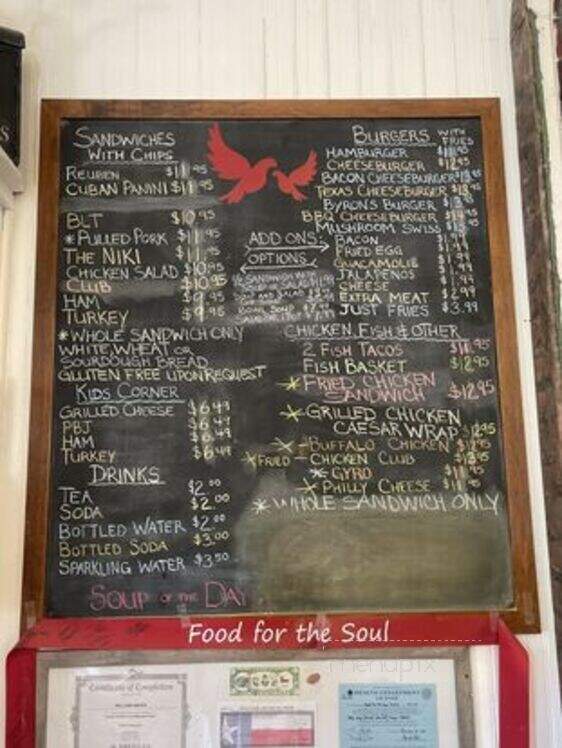 SANDWICHES
WITH CHIPS
REUBEN $11.95
CUBAN PANINI $11.95
BLT $10.95
*PULLED PORK $11.95
THE NIKI $11.95
CHICKEN SALAD $10.95
CLUB $10.95
HAM $9.95
TURKEY $9.95
*WHOLE SANDWICH ONLY
WHITE, WHEAT OR
SOURDOUGH BREAD
GLUTEN FREE UPON REQUEST
KIDS CORNER
GRILLED CHEESE $6.49
PBJ $6.49
HAM $6.49
TURKEY $6.49
DRINKS
TEA $2.00
SODA $2.00
BOTTLED WATER $2.00
BOTTLED SODA $3.00
SPARKLING WATER $3.50
SOUP OF THE DAY
BURGERS WITH FRIES
HAMBURGER
CHEESEBURGER $12.95
BACON CHEESEBURGER
TEXAS CHEESEBURGER
BYRON'S BURGER
BBQ CHEESEBURGER
MUSHROOM SWISS
ADD ONS:
OPTIONS
BACON
FRIED EGG
GUACAMOLE
JALAPENOS
CHEESE
EXTRA MEAT $2.99
JUST FRIES $3.99
½ SANDWICH WITH
CHICKEN, FISH & OTHER
2 FISH TACOS
FISH BASKET $12.95
*FRIED CHICKEN
SANDWICH $12.95
*GRILLED CHICKEN
CAESAR WRAP $12.95
*BUFFALO CHICKEN $12.95
*FRIED - CHICKEN CLUB
*GYRO
*PHILLY CHEESE
*WHOLE SANDWICH ONLY
Food for the Soul
menupix
Certificate of Completion
HEALTH DEPARTMENT